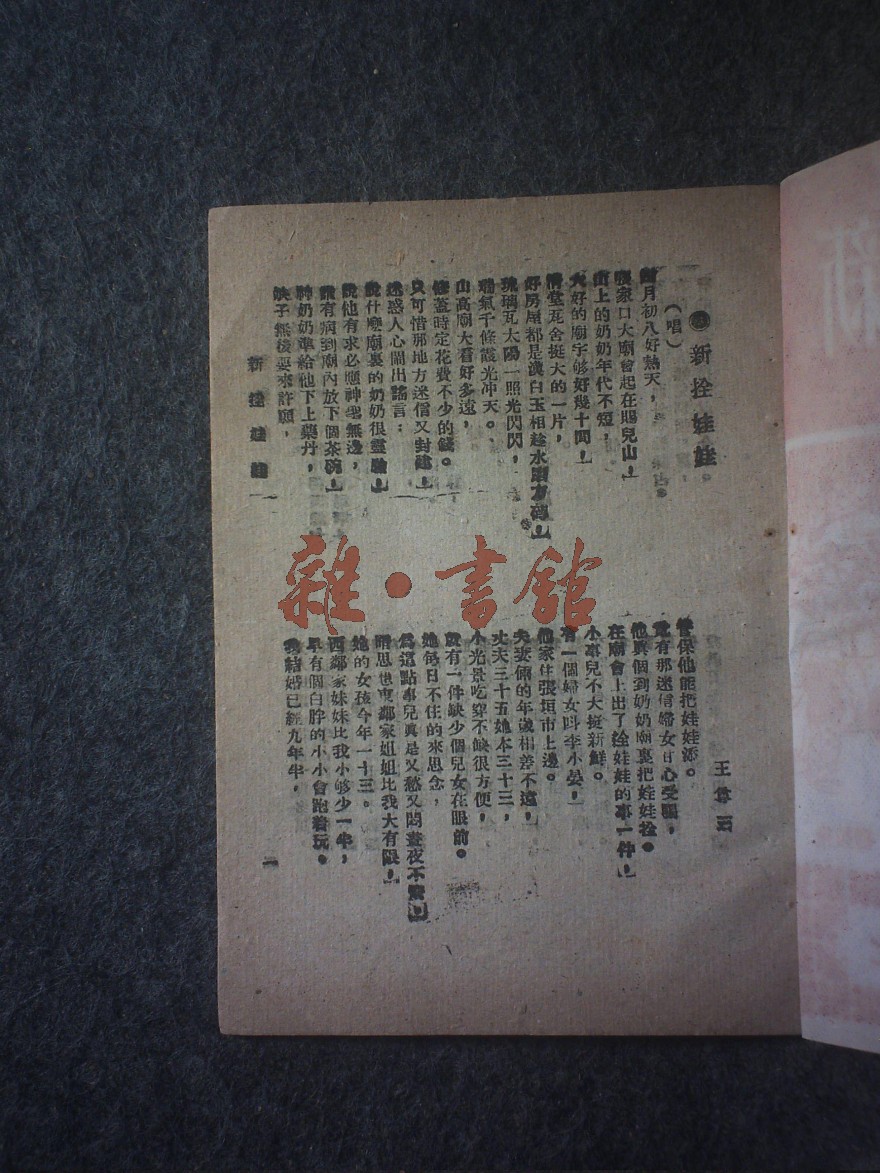 新拴娃娃
王尊三
（唱）
月初八好熱天，
張家口大廟會起在賜兒山，
山上的奶奶年代不短，
大好的廟宇够好幾十間，
清堂瓦舍挺大的一片，
好房屋都是漢白玉相趁水磨方磚，
琉璃瓦太陽一照光閃閃，
瑞氣千條霞光冲天。
山高廟大看好多遠，
修蓋時定花費不少的錢。
只可惜那地方迷信又封建，
迷惑人心鬧出謠言：
說什麼廟裏的奶奶很靈驗，
說他有求必應神靈無邊，
說有病到廟內放下個茶碗，
神奶奶準給他下上藥丹，
缺子無後要來許願，
管保他能把娃娃添。
竟有那迷信婦女甘心受騙，
他眞個到奶奶廟裏把娃娃拴。
在廟會上出了拴娃娃的事一件，
小事兒不大挺新鮮。
有一個婦女叫李小晏，
他家住張垣市上邊。
夫妻倆的年歲相差不遠，
丈夫三十五她本三十三，
小光景吃穿不缺很方便，
就有一件缺少個兒女在眼前。
她每日不住的來思念，
爲這點事兒眞是又愁又悶晝夜不安
暗思也東鄰家姐姐比我大有限，
她的女孩今年一十三。
西鄰家妹妹比我小够少一半，
早有個白胖的小小會跑着玩。
我結婚已經九年半，
新拴娃娃
一
雜·書舘
新